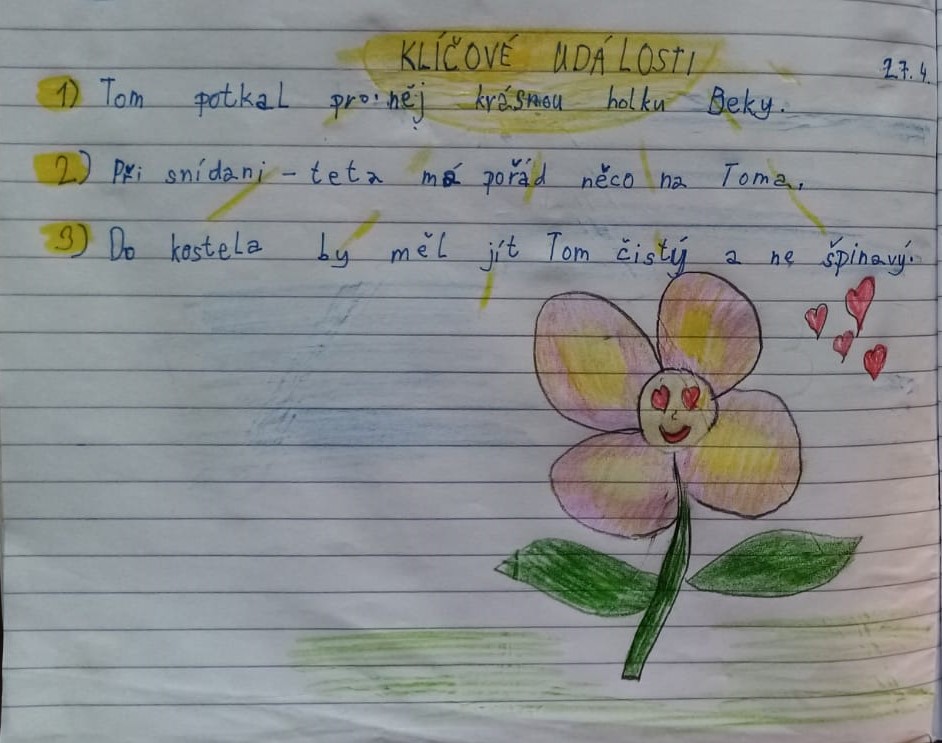 KLÍČOVÉ UDÁLOSTI
27.4.
1) Tom potkal pro něj krásnou holku Beky.
2) Při snídani - teta má pořád něco na Toma.
3) Do kostela by měl jít Tom čistý a ne špinavý.